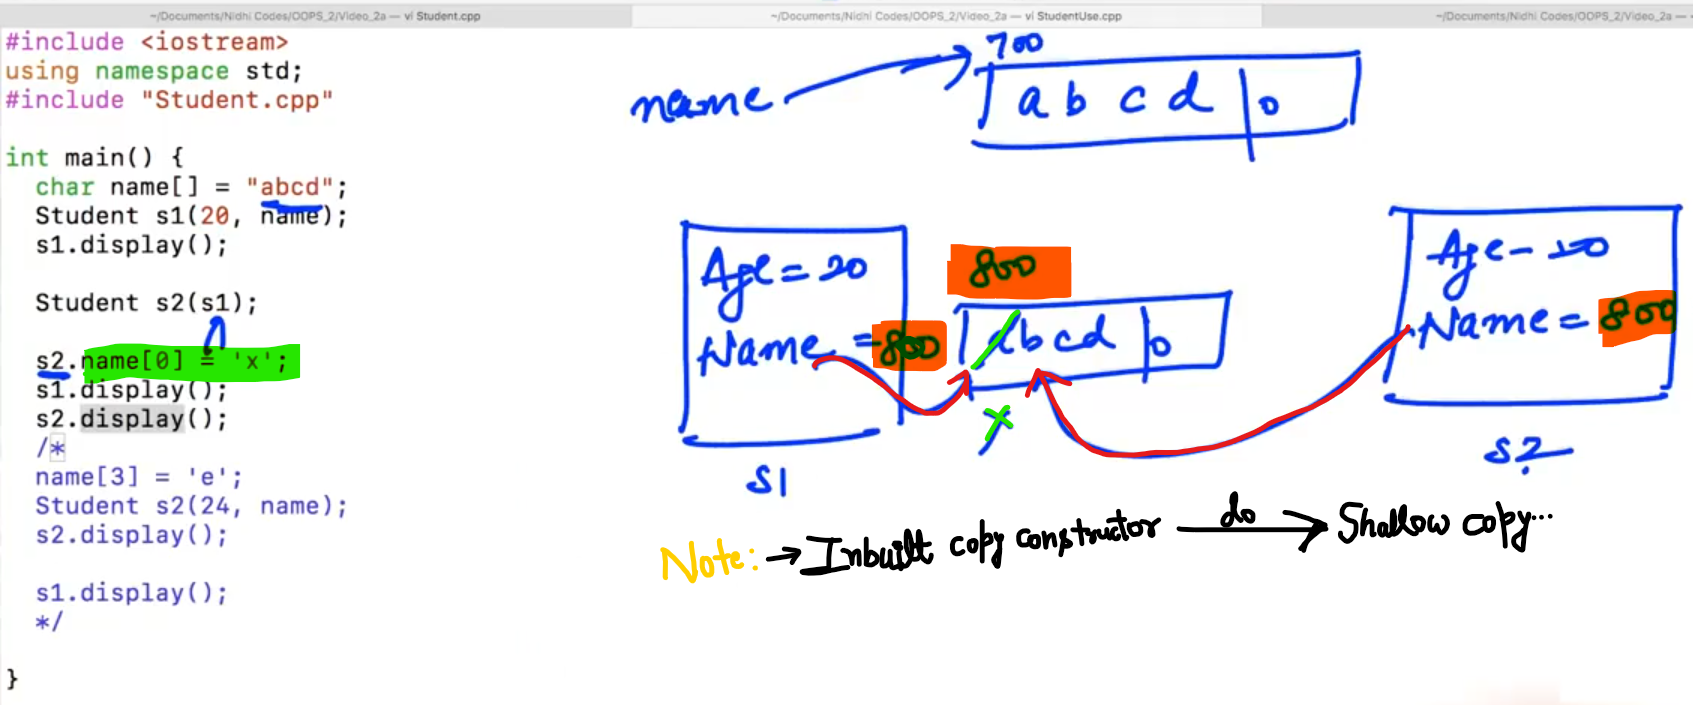 ~/Documents/Nidhi Codes/OOPS_2/Video_2a — vi Student.cpp
~/Documents/Nidhi Codes/OOPS_2/Video_2a — vi StudentUse.cpp
~/Documents/Nidhi Codes/OOPS_2/Video_2a —
#include <iostream>
using namespace std;
#include "Student.cpp"
int main() {
char name[] = "abcd";
Student s1(20, name);
s1.display();
Student s2(s1);
s2.name[0] = 'x';
s1.display();
s2.display();
/*
name[3] = 'e';
Student s2(24, name);
s2.display();
s1.display();
*/
}
700
name
a b c d 0
Age = 20
Name = 800
S1
800
a b c d 0
x
Age - 20
Name = 800
S2
Note: → Inbuilt copy constructor do → Shallow copy...